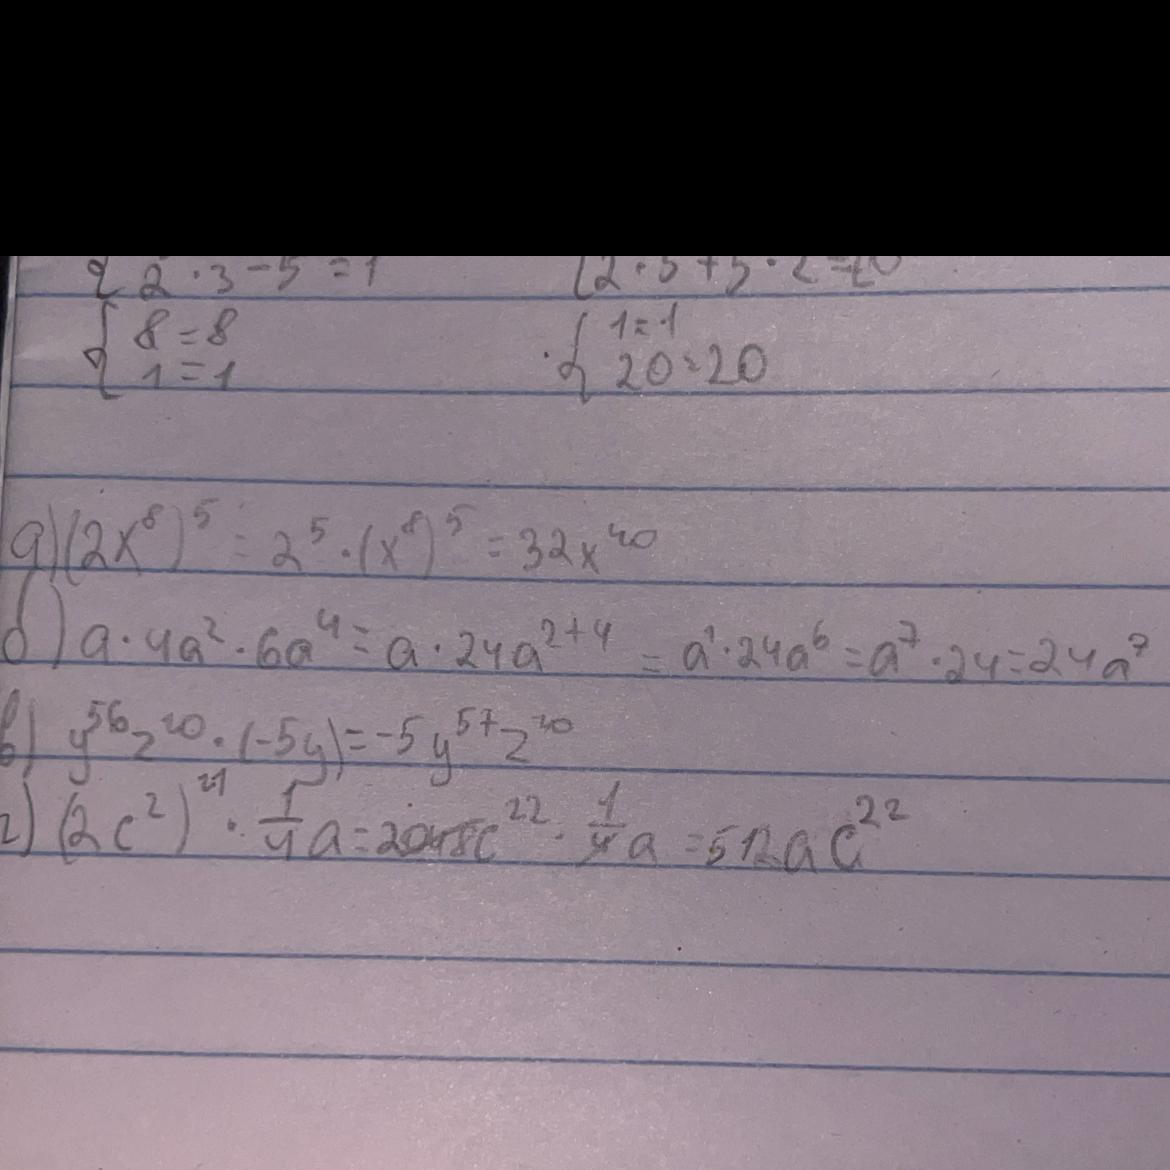 { 2 · 3 - 5 = 1
{ 8 = 8
1 = 1
{ 1 = 1
20 = 20
а) (2x⁸)⁵ = 2⁵ · (x⁸)⁵ = 32x⁴⁰
б) a · 4a² · 6a⁴ = a · 24a²⁺⁴ = a¹ · 24a⁶ = a⁷ · 24 = 24a⁷
в) y⁵⁶z⁴⁰ · (-5y) = -5y⁵⁷z⁴⁰
г) (2c²)¹¹ · 1/4 a = 2048c²² · 1/4 a = 512ac²²